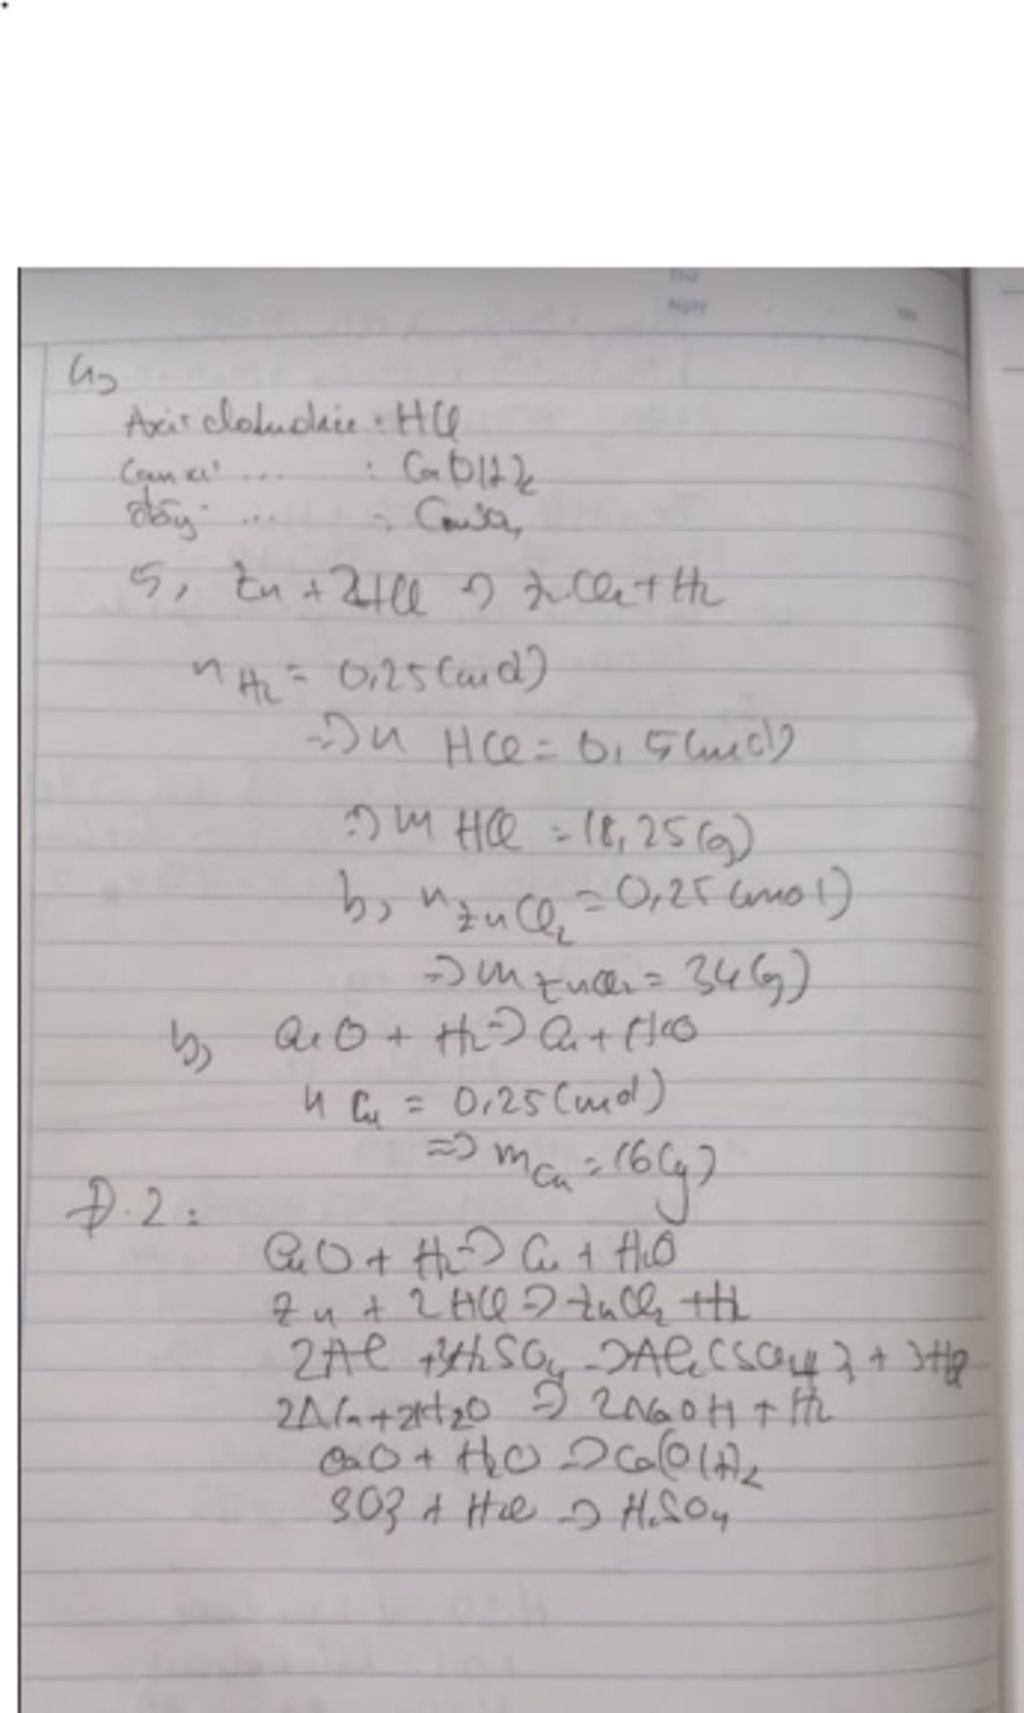 Thứ
Ngày
No.
4,
Axit clohidric : HCl
Canxi ... : Ca(OH)2
đồng ... : CuSO4
5, Zn + 2HCl => ZnCl2 + H2
n H2 = 0,25 (mol)
=> n HCl = 0,5 (mol)
=> m HCl = 18,25 (g)
b, n ZnCl2 = 0,25 (mol)
=> m ZnCl2 = 34 (g)
b, CuO + H2 => Cu + H2O
n Cu = 0,25 (mol)
=> m Cu = 16 (g)
Đ.2 :
CuO + H2 => Cu + H2O
Zn + 2HCl => ZnCl2 + H2
2Al + 3H2SO4 => Al2(SO4)3 + 3H2
2Na + 2H2O => 2NaOH + H2
CaO + H2O => Ca(OH)2
SO3 + => H2SO4